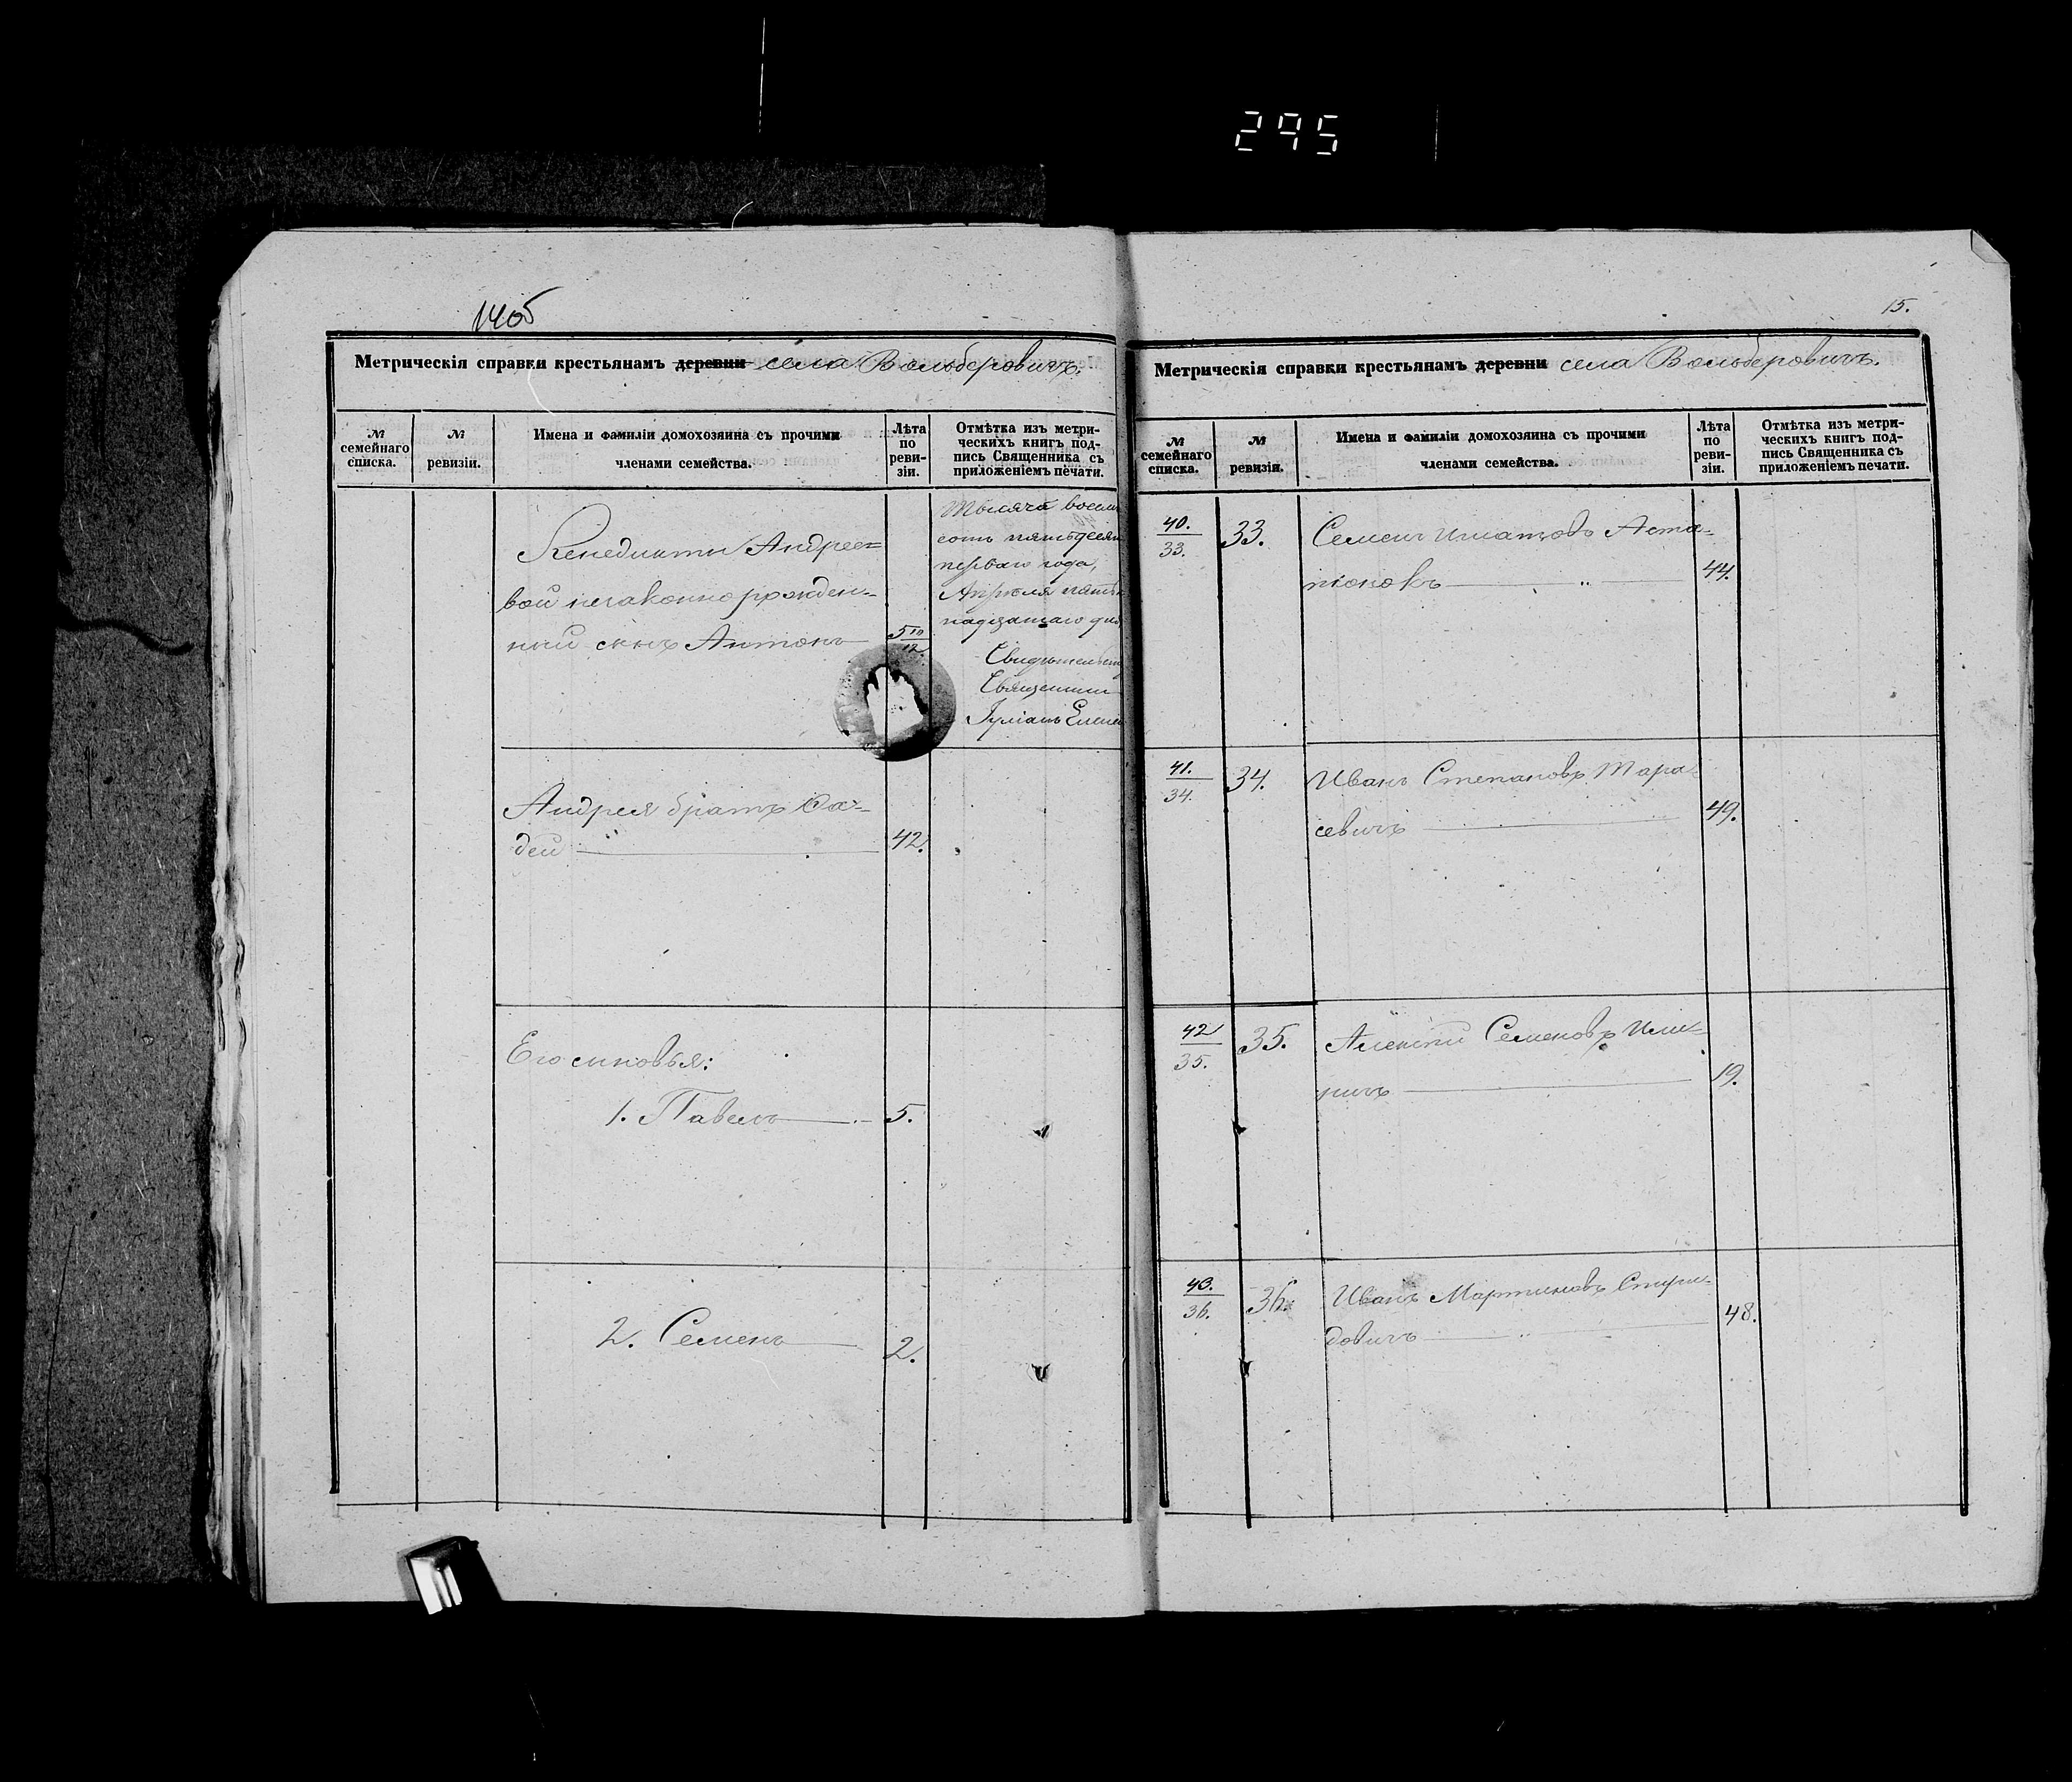 295
14об
15.
Метрическія справки крестьянамъ деревни села Вольберовичъ.
№ семейнаго списка.
№ ревизіи.
Имена и фамиліи домохозяина съ прочими
членами семейства.
Лѣта по реви-зіи.
Отмѣтка изъ метри-
ческихъ книгъ под-
пись Священника съ
приложеніемъ печати.
Бенедикты Андрее-
вой незаконнорожден-
ный сынъ Антонъ
5 10/12
Тысяча восем
сотъ пятьдесят
перваго года,
Апрѣля пят
надцатаго дня
Священник
Іуліанъ
Андрея братъ Фа-
дей 42.
Его сыновья:
1. Павелъ 5.
2. Семенъ 2.
Метрическія справки крестьянамъ деревни села Вольберовичъ.
№ семейнаго списка.
№ ревизіи.
Имена и фамиліи домохозяина съ прочими
членами семейства.
Лѣта по реви-зіи.
Отмѣтка изъ метри-
ческихъ книгъ под-
пись Священника съ
приложеніемъ печати.
40./33. 33. Семенъ Игнатовъ Аста-
пёнокъ 44.
41./34. 34. Иванъ Степановъ Тара-
севичъ 49.
42/35. 35. Алексѣй Семеновъ
19.
43./36. 36. Иванъ Мартиновъ
довичъ 48.